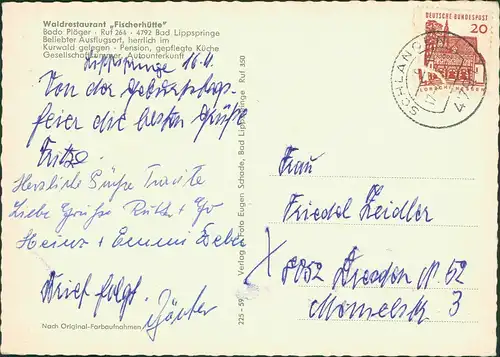 Waldrestaurant „Fischerhütte"
Bodo Plöger - Ruf 264 - 4792 Bad Lippspringe
Beliebter Ausflugsort, herrlich im
Kurwald gelegen - Pension, gepflegte Küche
Gesellschaftszimmer, Autounterkunft
Lippspringe 16.4.
Von der Geburtstags-
feier die besten Grüße
Fritze
Herzliche Grüße
Liebe Grüße Ruth +
Heinz + Emmi
Brief folgt.
Nach Original-Farbaufnahmen
225-59
Verlag Foto Eugen Schade, Bad Lippspringe Ruf 350
DEUTSCHE BUNDESPOST
20
LORSCH/HESSEN
SCHLANGEN
Frau
Friedel Zeidler
8052 Dresden N 52
3